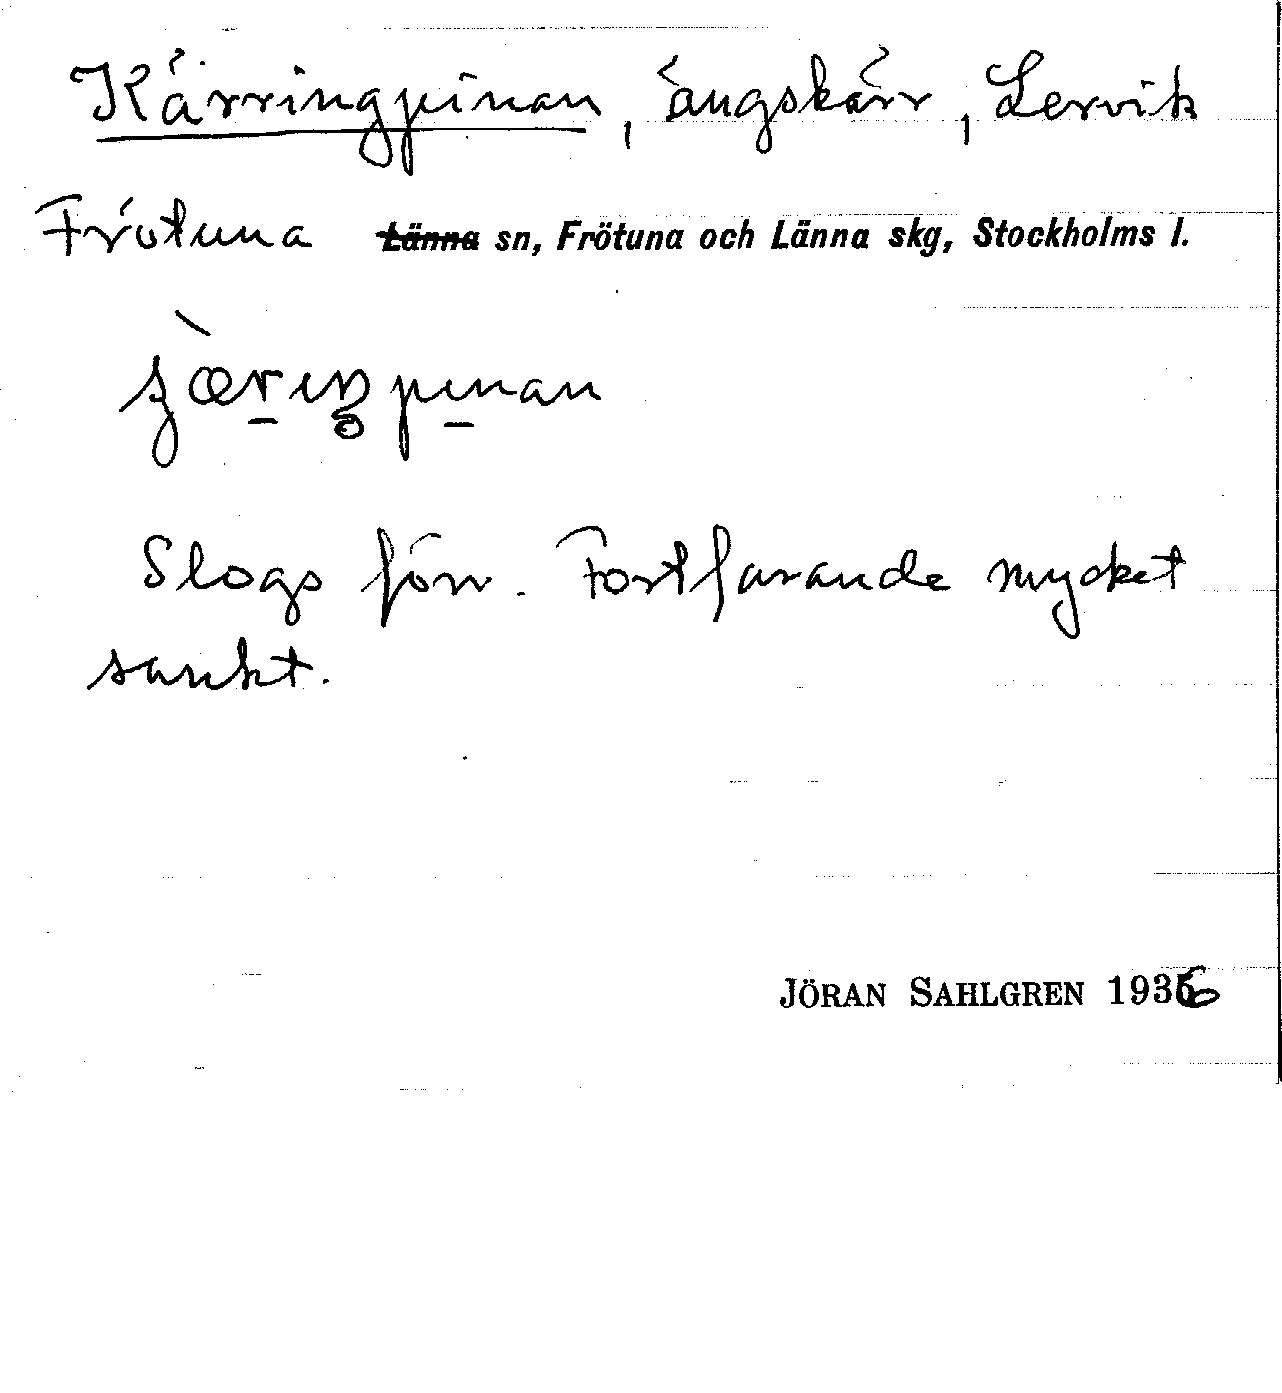 Kärringpinan, ängskärr, Lervik
Frötuna Länna sn, Frötuna och Länna skg, Stockholms l.
Slogs förr. Fortfarande mycket
sankt.
JÖRAN SAHLGREN 1936